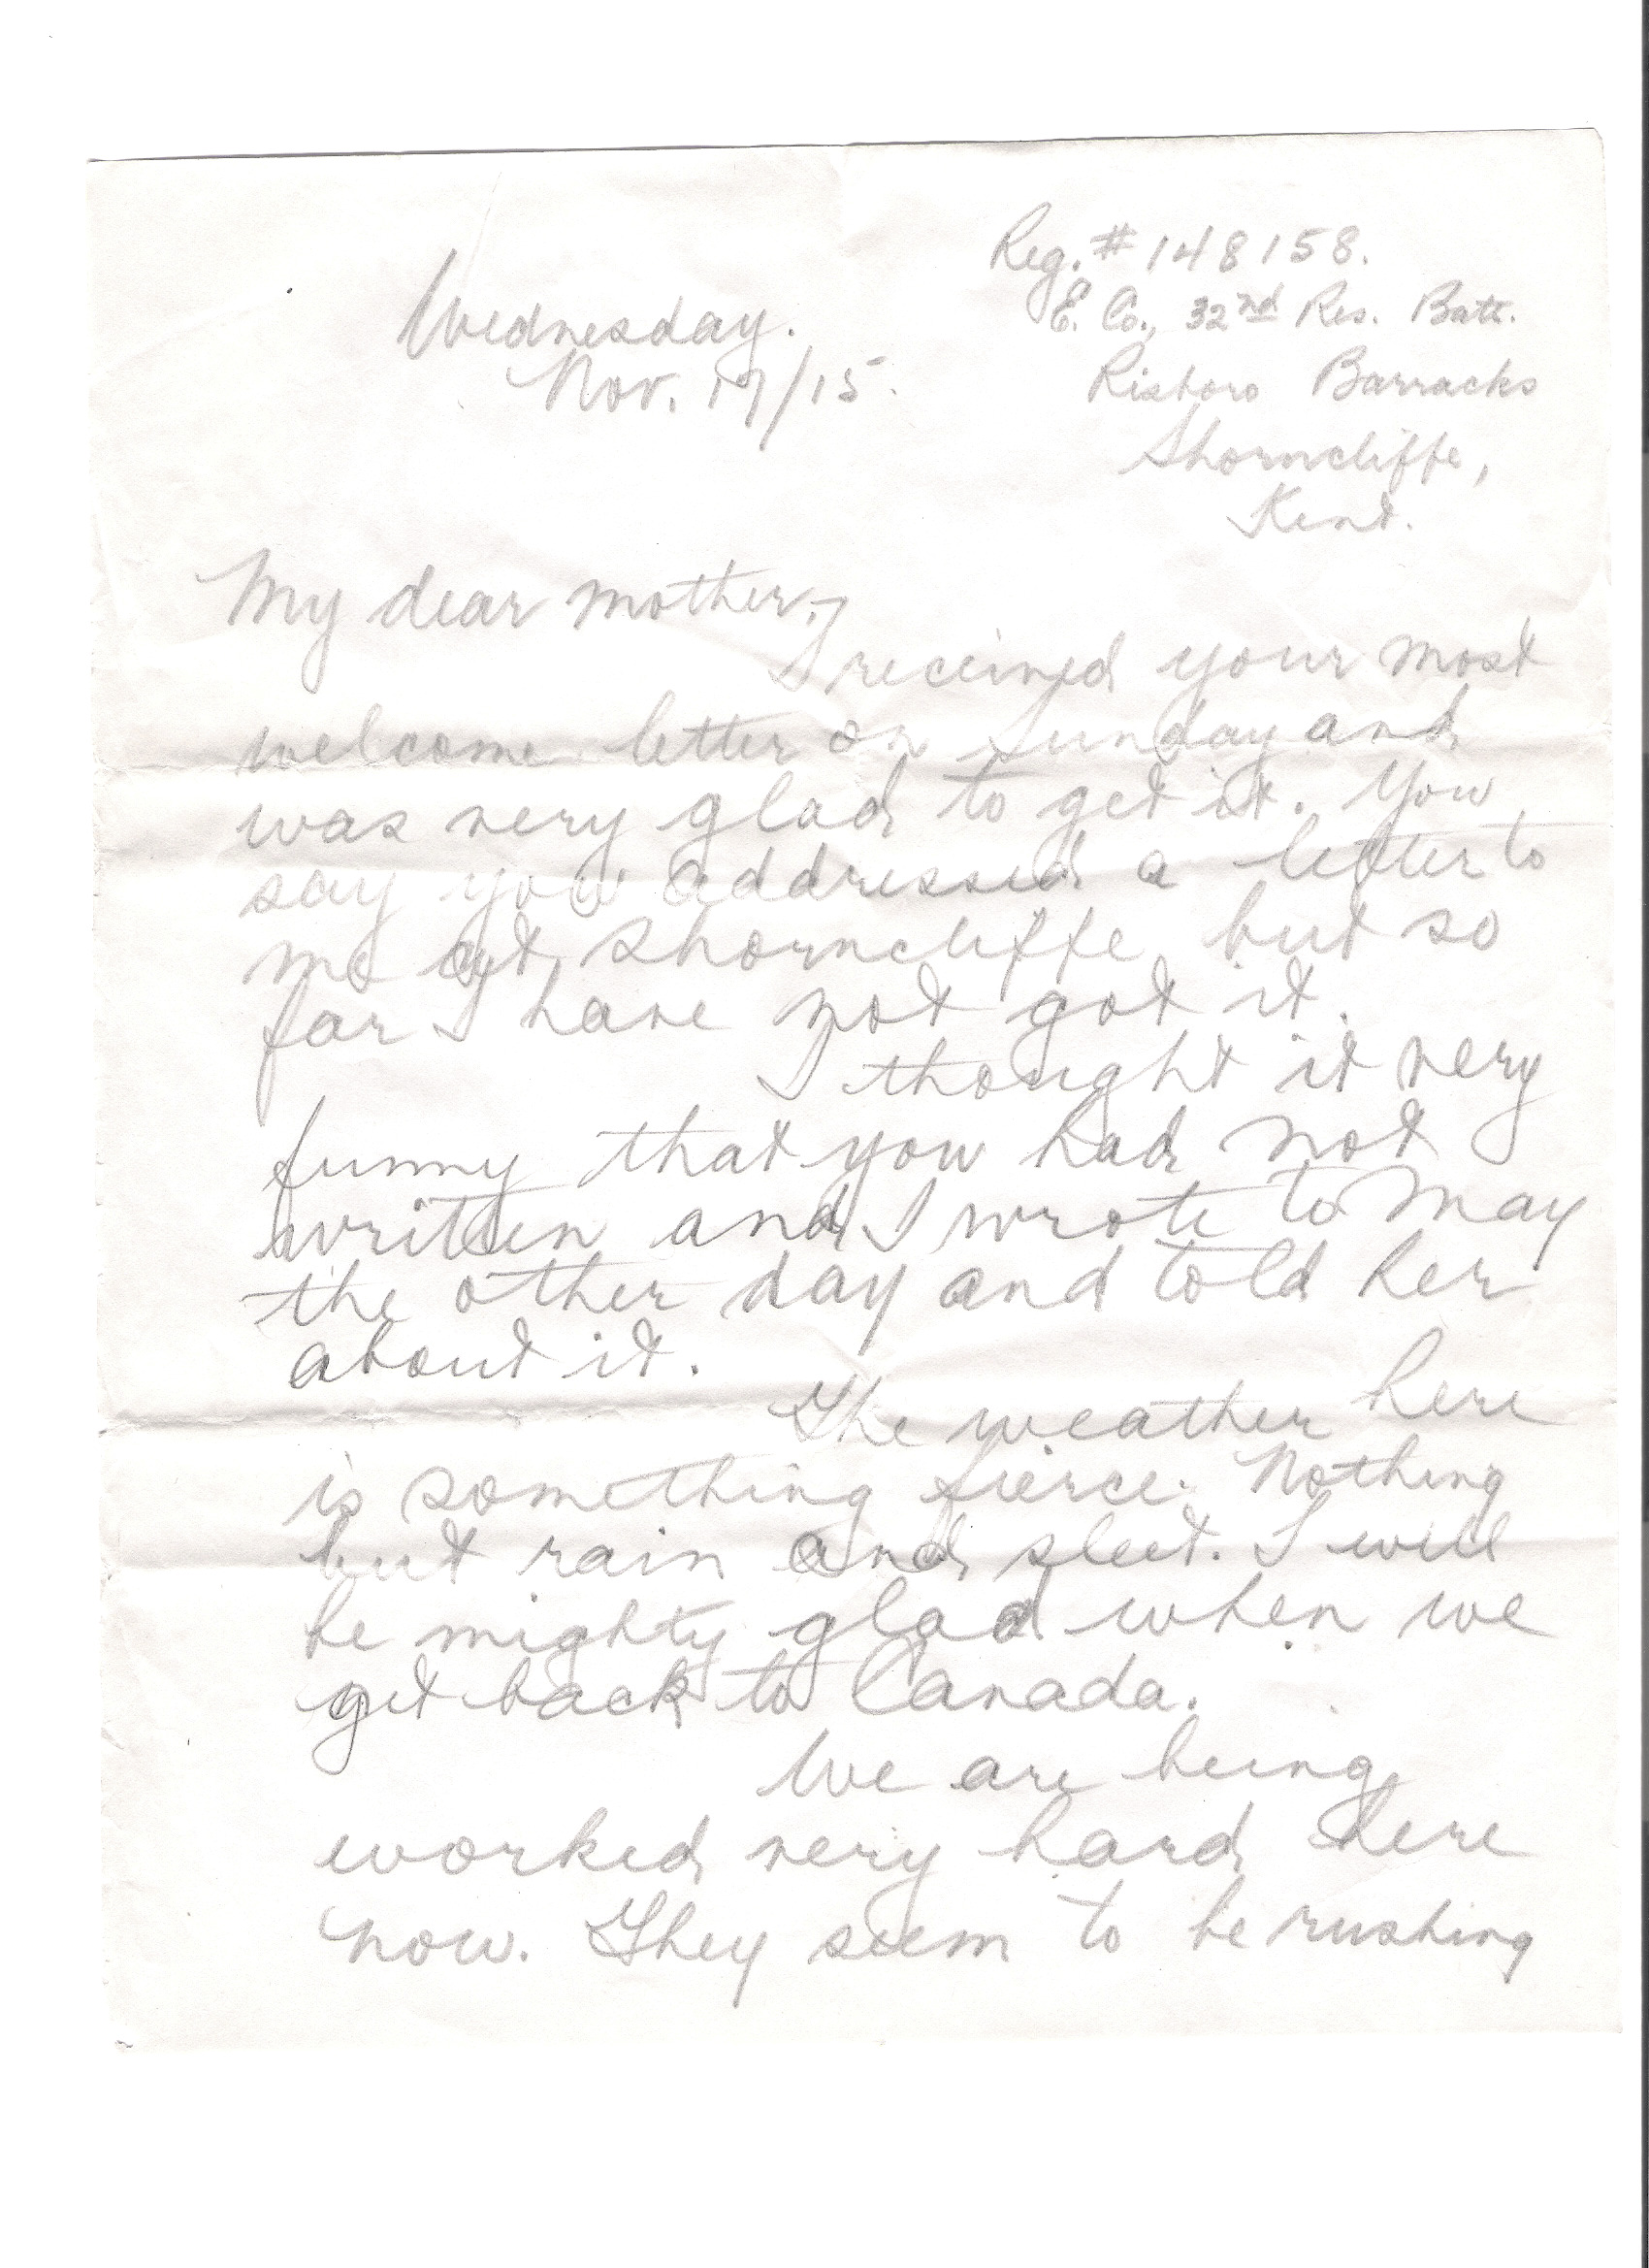 Reg. # 148158.
E. Co., 32nd Res. Batt.
Risboro Barracks
Shorncliffe,
Kent.
Wednesday.
Nov. 17/15.
My dear mother,-
I received your most
welcome letter on Sunday and
was very glad to get it. You
say you addressed a letter to
me at Shorncliffe but so
far I have not got it.
I thought it very
funny that you had not
written and I wrote to May
the other day and told her
about it.
The weather here
is something fierce. Nothing
but rain and sleet. I will
be mighty glad when we
get back to Canada.
We are being
worked very hard here
now. They seem to be rushing